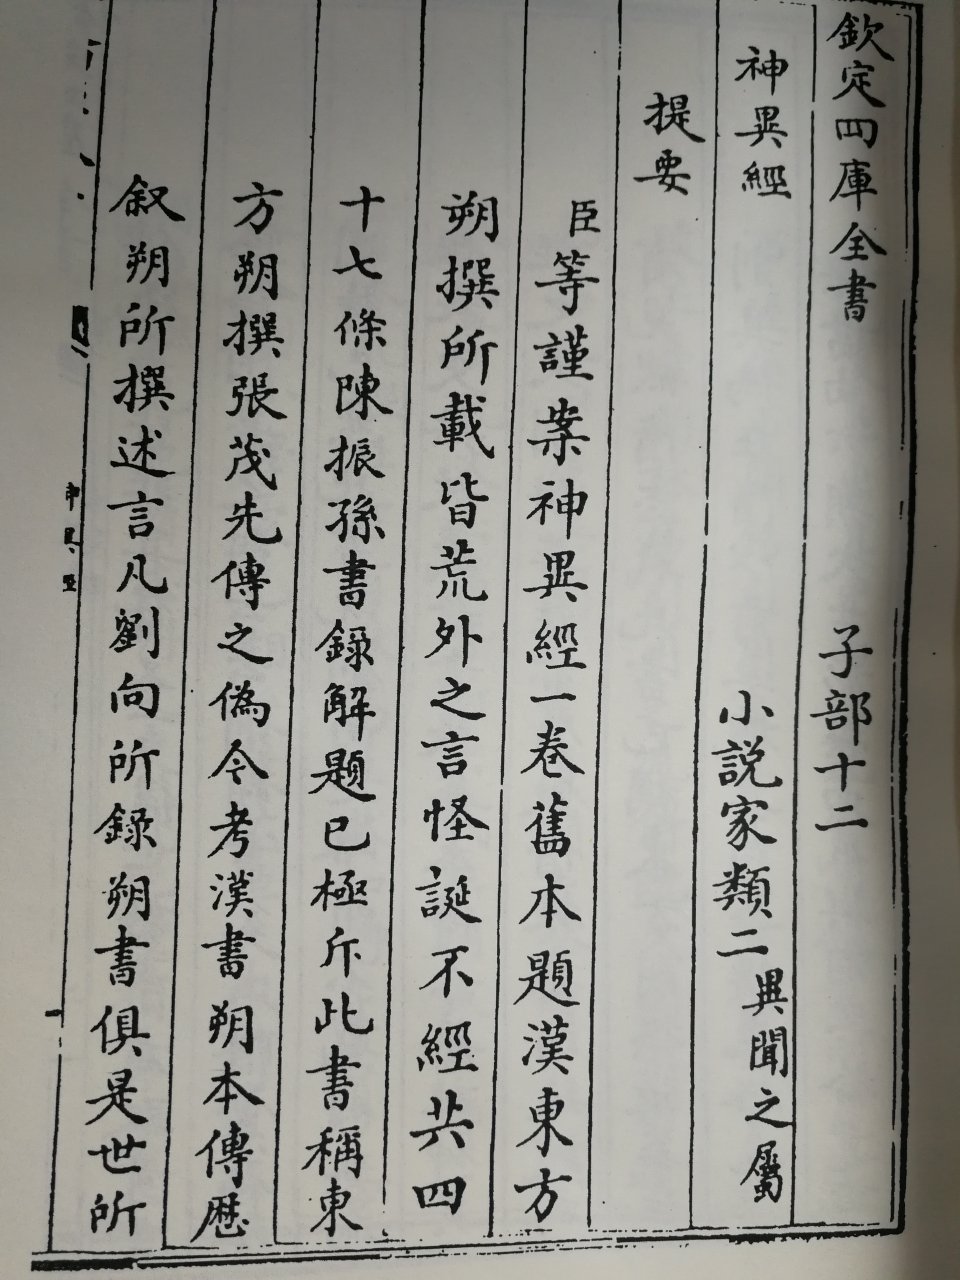 欽定四庫全書 子部十二
神異經 小說家類二 異聞之屬
提要
臣等謹案神異經一卷舊本題漢東方
朔撰所載皆荒外之言怪誕不經共四
十七條陳振孫書錄解題已極斥此書稱東
方朔撰張茂先傳之偽今考漢書朔本傳歷
叙朔所撰述言凡劉向所錄朔書俱是世所